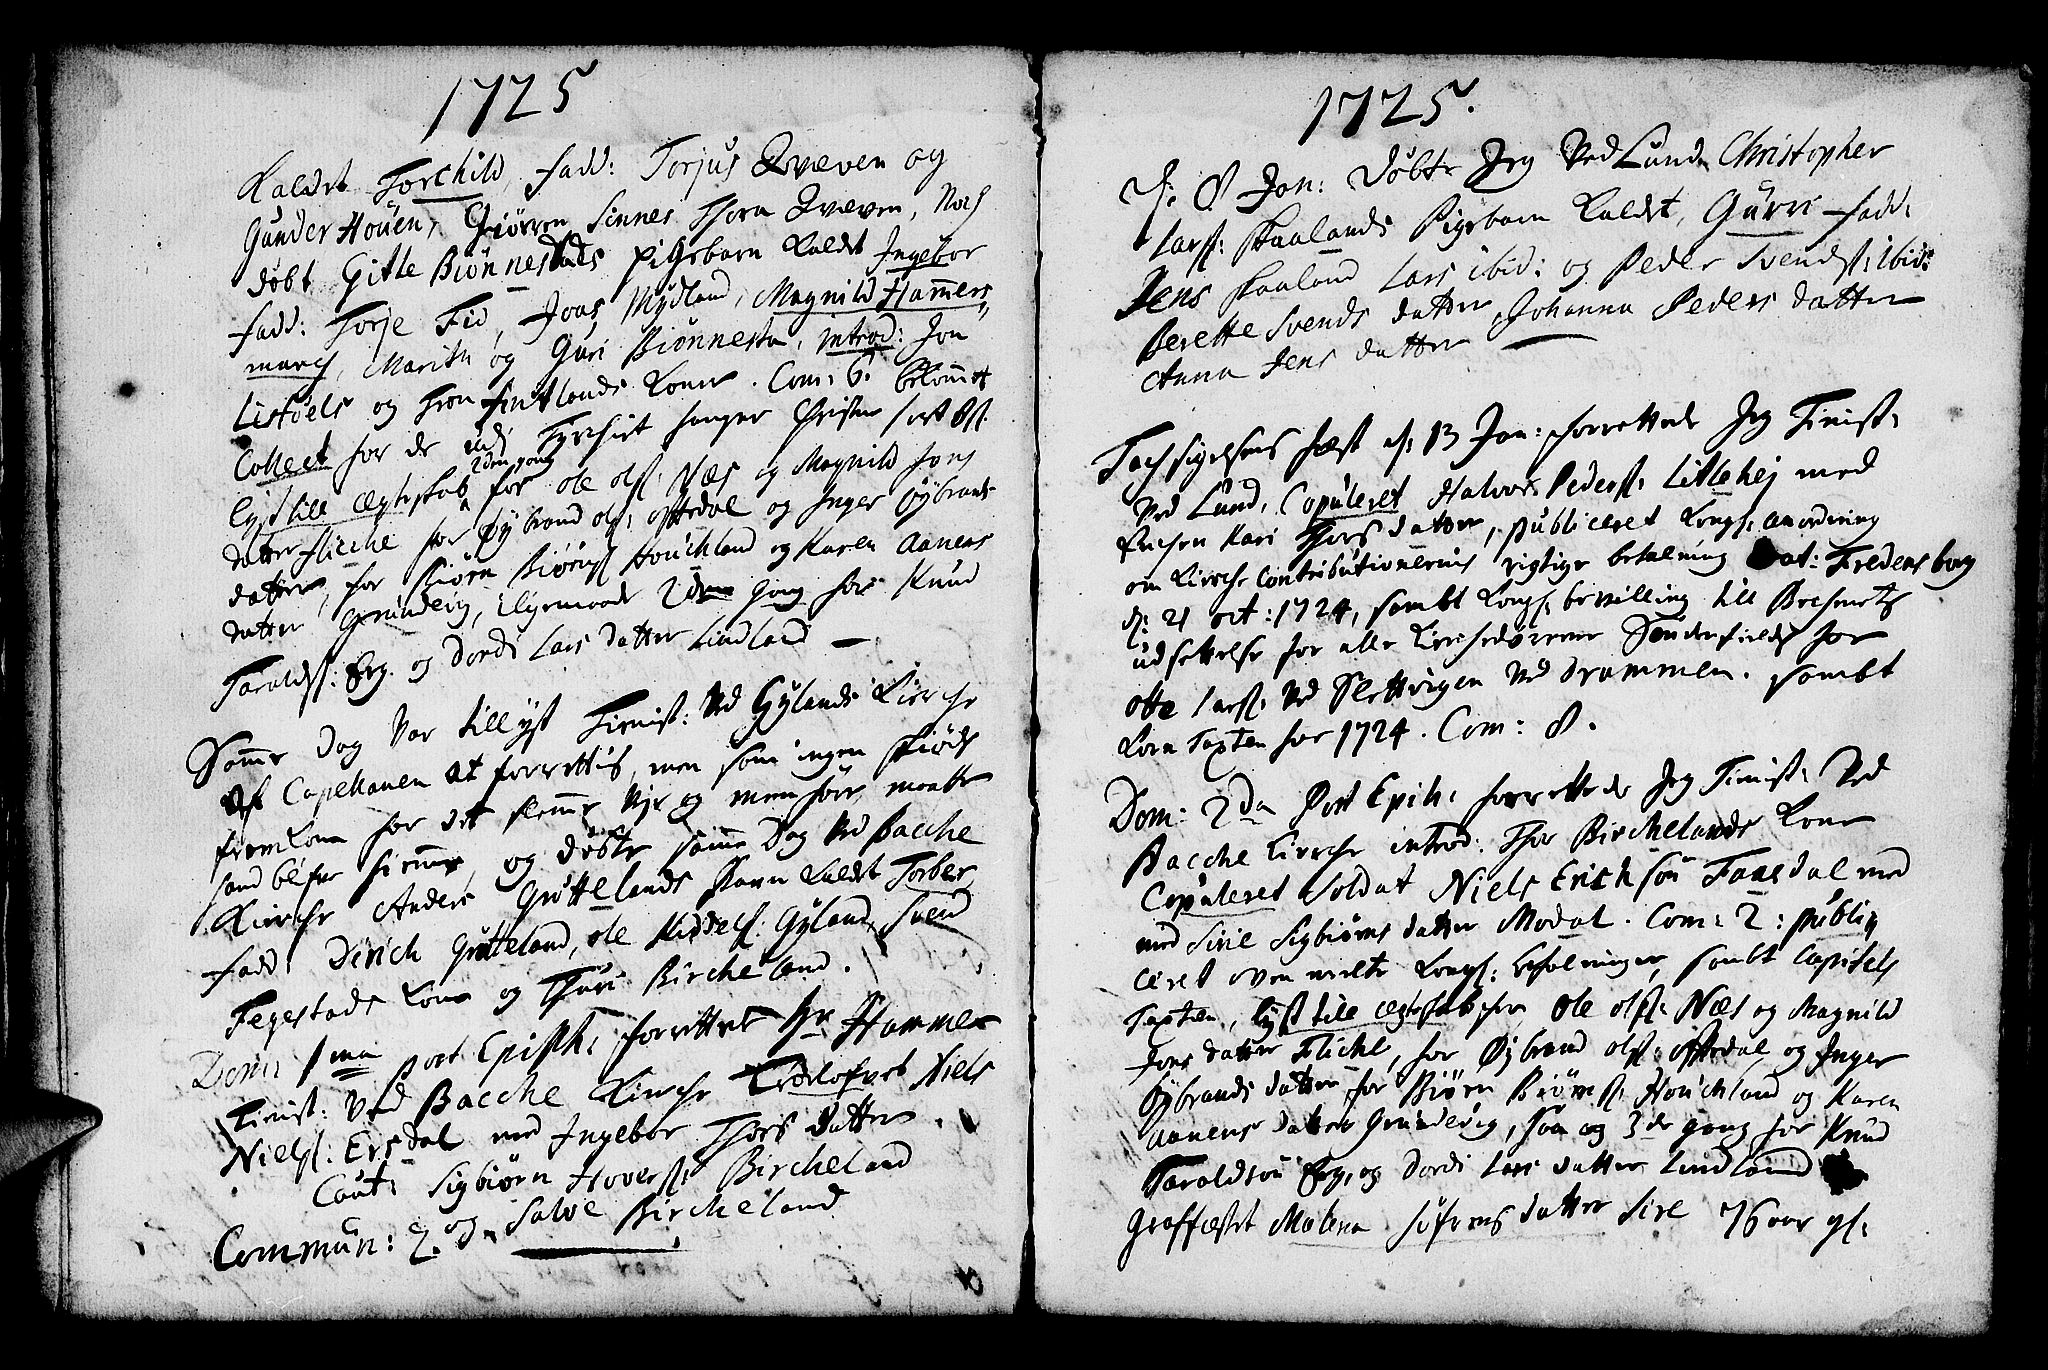 1725
Kaldet Torchild, fadd: Torjus Qveven og
Gunder Houen, Giørren Sinnes Thora Qveven, Noch
døbt Gitle Biønnestads Pigebarn kaldet Ingebor
fadd: Torje Fid, Joas Mydland, Magnild Hammers
march, Marith og Guri Biønnesta, introd: Jon
Listøels og Tron Fintlands koner. Com: 6. bekommet
Collect for de udj fangne Christne
lyst till ægteskab 2den gang for ole olss: Næs og Magnild Jons
datter Fliche for Øybrond olss: offtedal og Inger Øybronds
datter, for Biørn Biørnss: Houchland og Karen Aanens
datter Grundevig, 2den gang for Knud
Taroldss: Eeg. og Dordi Lars datter Lindland —
Samme dag var till yst Tienist: Ved Gylands Kirche
af Capellanen at forrettis, men som ingen
fremkom for det slemme og
hand blef hiemme, og døbte samme Dag Ved Bacche
Kirche Anders Grøttelands Barn kaldet Torber
fadd: Dirich Grøtteland, ole Kiddelss: Gyland, Svend
Fegestads kone og Thuri Bircheland.
Dom: 1ma post Epiph: forrettet Hr Hammer
Tienist: Ved Bacche Kirche Trolofvet Niels
Nielss: Ersdal med Ingebor Thors datter.
Caut: Sigbiørn Hoverss: Bircheland
og Salve Bircheland
Commun: 2.
1725.
d: 8 Jan: døbte Jeg Ved Lunde Christopher
Larss: Skaalands Pigebarn kaldet, Gurri fadd:
Jens Skaaland Lars ibid: og Peder Svendss: ibid:
Berette Svends datter, Johanna Peders datter
Anna Jens datter
Tachsigelsens fæst d: 13 Jan: forrettede Jeg Tienist:
Ved Lund, Copuleret Halvor Pederss: Littlehej med
Kari Thors datter, publiceret Kongl: anordning
om Kirche Contributionernis rigtige betalning Dat: Fredensborg
d: 21 oct: 1724, sambt Kongl: bevilling till Becsnets
udsettelse for alle Kirchedørrene Søndenfields for
otte Larss: Ved Slettvigen Ved Drammen. sambt
Korn Taxten for 1724. Com: 8.
Dom: 2da Post Epih: forrettede Jeg Tienist: Ved
Bacche Kirche introd: Thor Birchelands kone
Copuleret Soldat Niels Erichsøn Taasdal med
med Sirie Sigbiørns datter Modal. Com: 2: publi
ceret oven meldte Kongl: befalninger, sambt Capitels
Taxten, lyst till ægteskab for ole olss: Næs og Magnild
Jons datter Fliche, for Øybrond olss: offtedal og Inger
Øybronds datter for Biørn Biørnss: Houchland og Karen
Aanens datter Grundevig, saa og 3de gang for Knud
Taroldsøn Eeg, og Dordi Lars datter Lindland
Graffæstet Malena Søfrens datter Sire 76 aar gl: